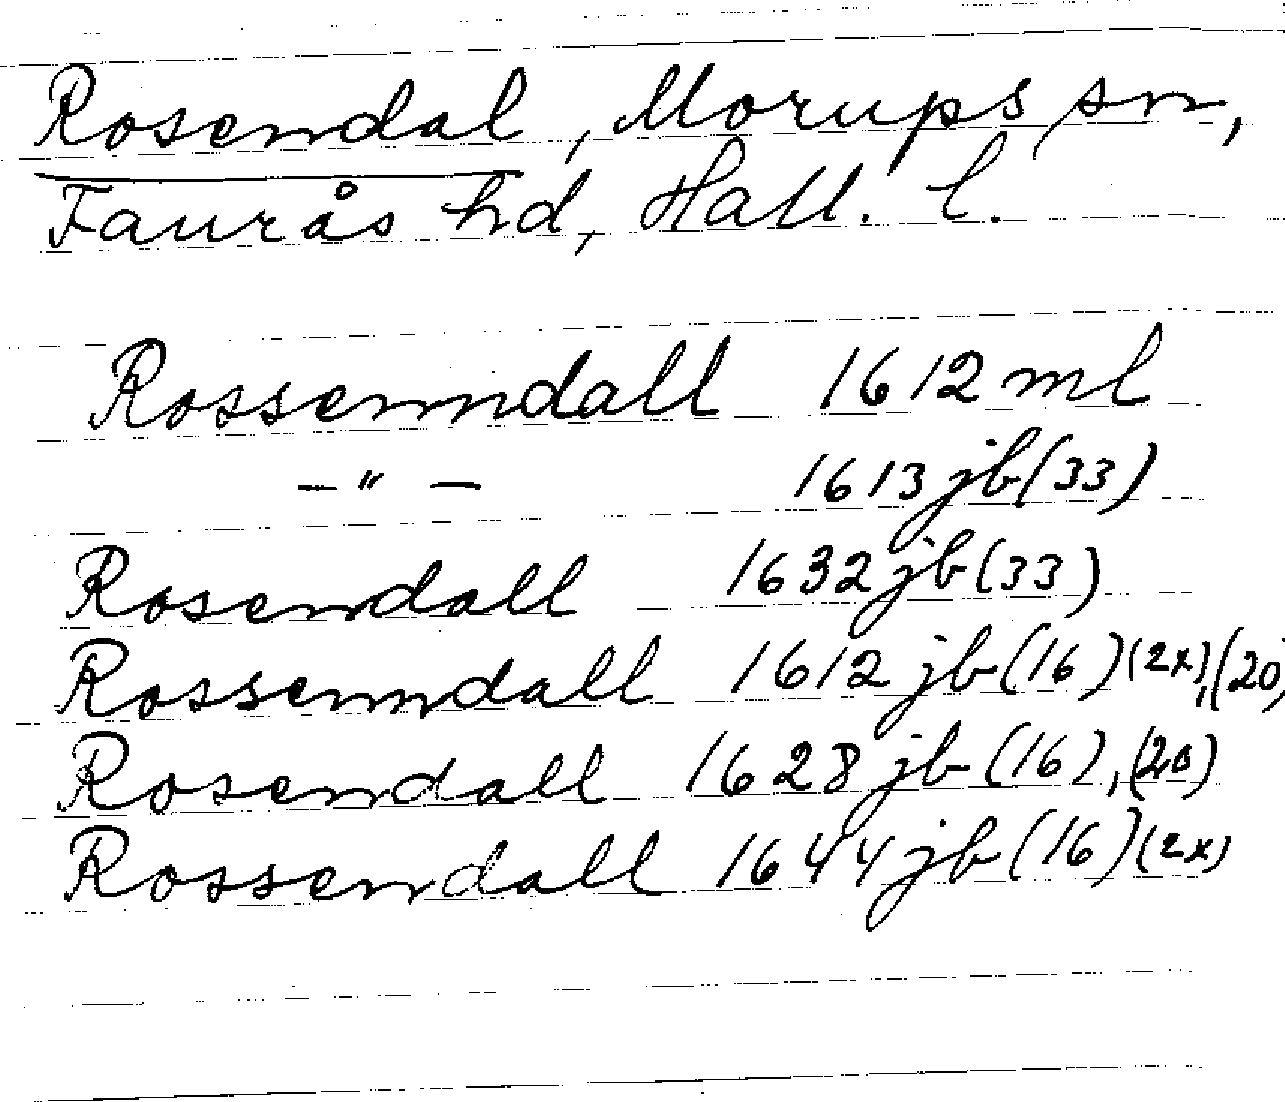 Rosendal, Morups sn,
Faurås hd, Hall. l.
Rossenndall 1612 ml
— " — 1613 jb (33)
Rosendall 1632 jb (33)
Rossenndall 1612 jb (16) (2x), (20)
Rosendall 1628 jb (16), (20)
Rossendall 1644 jb (16) (2x)